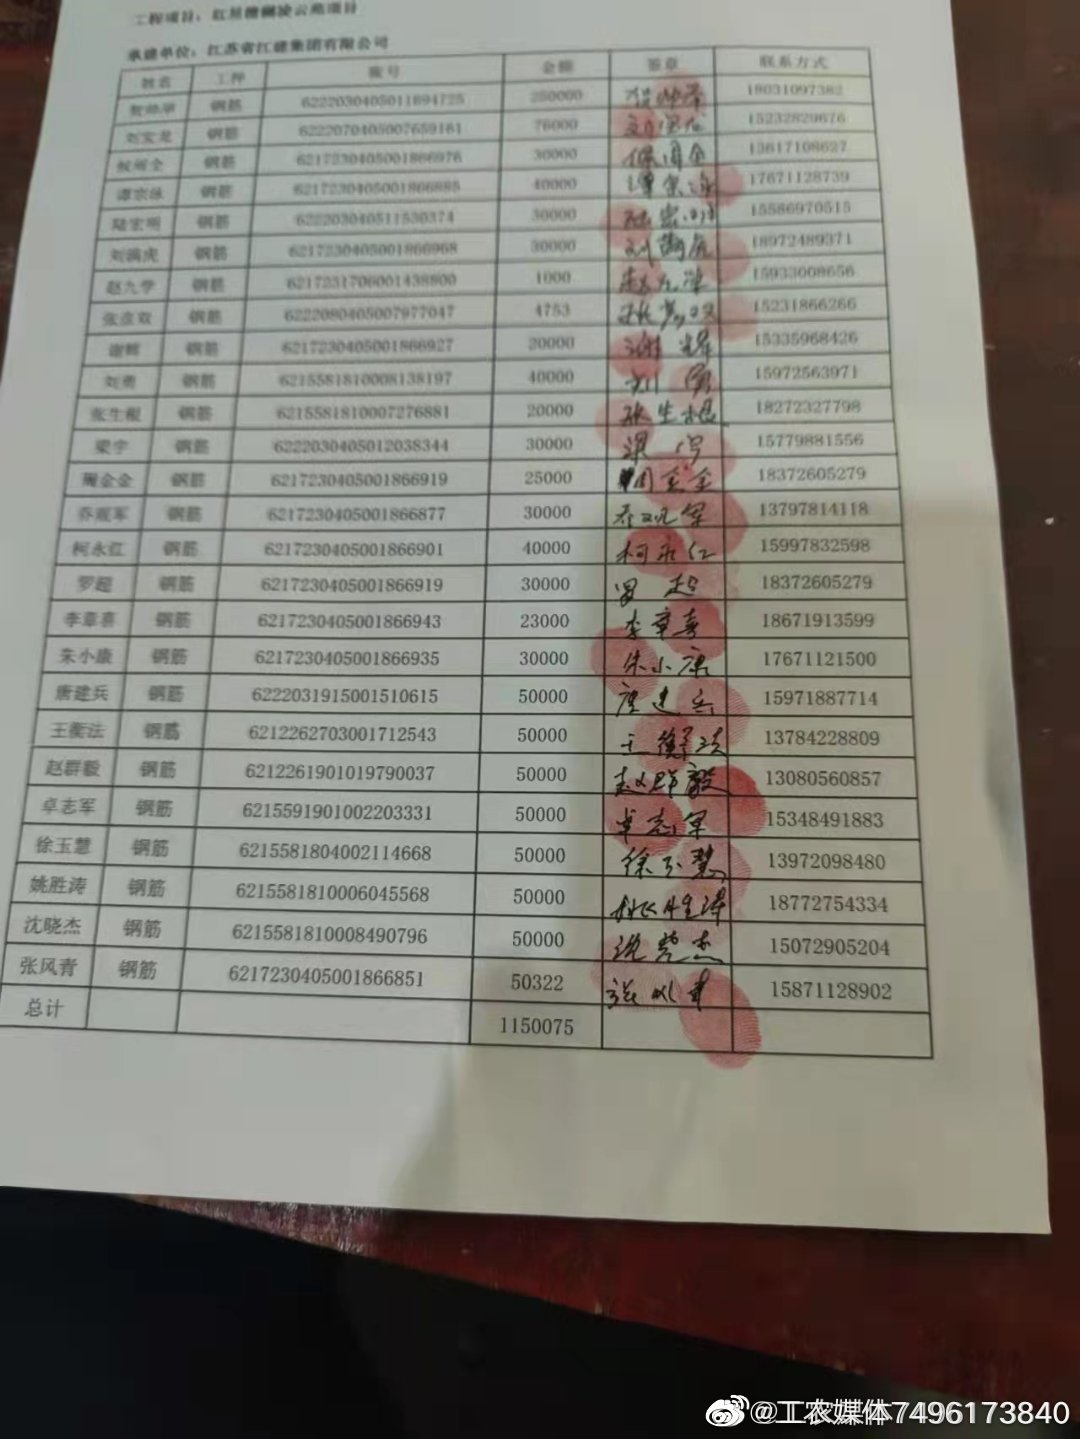 承建单位：江苏省江建集团有限公司
姓名 工种 账号 金额 签章 联系方式
钢筋 6222030405011694725 250000 18031097382
刘宝龙 钢筋 6222070405007659161 76000 15232829676
钢筋 6217230405001866976 30000 13617108627
谭宗泳 钢筋 6217230405001866885 40000 17671128739
陆宏明 钢筋 622203040511530374 30000 陆宏明 15586970515
刘满虎 钢筋 6217230405001866968 30000 18972489371
赵九学 钢筋 6217231706001438800 1000 赵九学 15933008656
张彦双 钢筋 6222080405007977047 4753 15231866266
谢辉 钢筋 6217230405001866927 20000 谢辉 15335968426
刘勇 钢筋 6215581810008138197 40000 刘勇 15972563971
张生根 钢筋 6215581810007276881 20000 张生根 18272327798
梁宇 钢筋 6222030405012038344 30000 梁宇 15779881556
周金金 钢筋 6217230405001866919 25000 周金金 18372605279
乔观军 钢筋 6217230405001866877 30000 乔观军 13797814118
柯永红 钢筋 6217230405001866901 40000 柯永仁 15997832598
罗超 钢筋 6217230405001866919 30000 罗超 18372605279
李章喜 钢筋 6217230405001866943 23000 李章喜 18671913599
朱小康 钢筋 6217230405001866935 30000 朱小康 17671121500
唐建兵 钢筋 6222031915001510615 50000 唐建兵 15971887714
王衡法 钢筋 6212262703001712543 50000 王衡法 13784228809
赵群毅 钢筋 6212261901019790037 50000 赵群毅 13080560857
卓志军 钢筋 6215591901002203331 50000 卓志军 15348491883
徐玉慧 钢筋 6215581804002114668 50000 徐玉慧 13972098480
姚胜涛 钢筋 6215581810006045568 50000 姚胜涛 18772754334
沈晓杰 钢筋 6215581810008490796 50000 沈晓杰 15072905204
张风青 钢筋 6217230405001866851 50322 15871128902
总计 1150075
@工农媒体7496173840